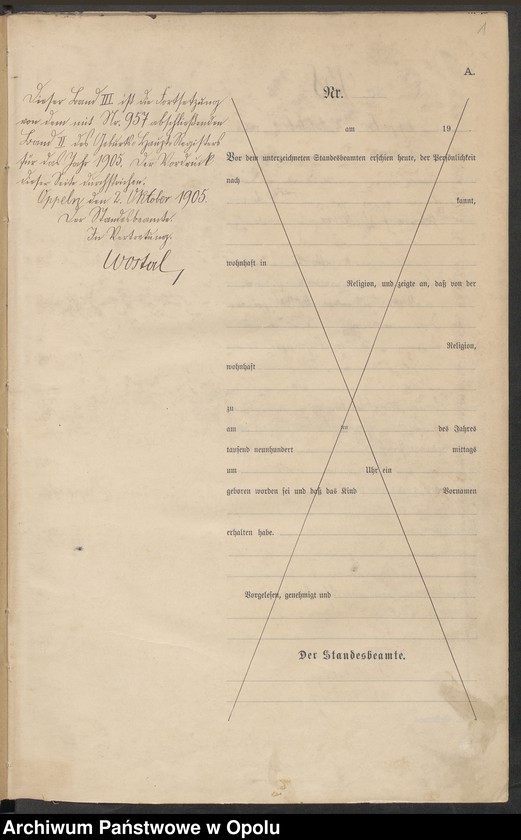 1
A.
Dieser Band III ist die Fortsetzung
von dem mit Nr. 957 abschließenden
Band II des Geburts-Haupt-Registers
für das Jahr 1905. Der Vordruck
dieser Seite durchstrichen.
Oppeln den 2. Oktober 1905.
Der Standesbeamte.
In Vertretung.
Wostal
Nr.
am 19
Vor dem unterzeichneten Standesbeamten erschien heute, der Persönlichkeit
nach
kannt,
wohnhaft in
Religion, und zeigte an, daß von der
Religion,
wohnhaft
zu
am ten des Jahres
tausend neunhundert mittags
um Uhr ein
geboren worden sei und daß das Kind Vornamen
erhalten habe.
Vorgelesen, genehmigt und
Der Standesbeamte.
Archiwum Państwowe w Opolu